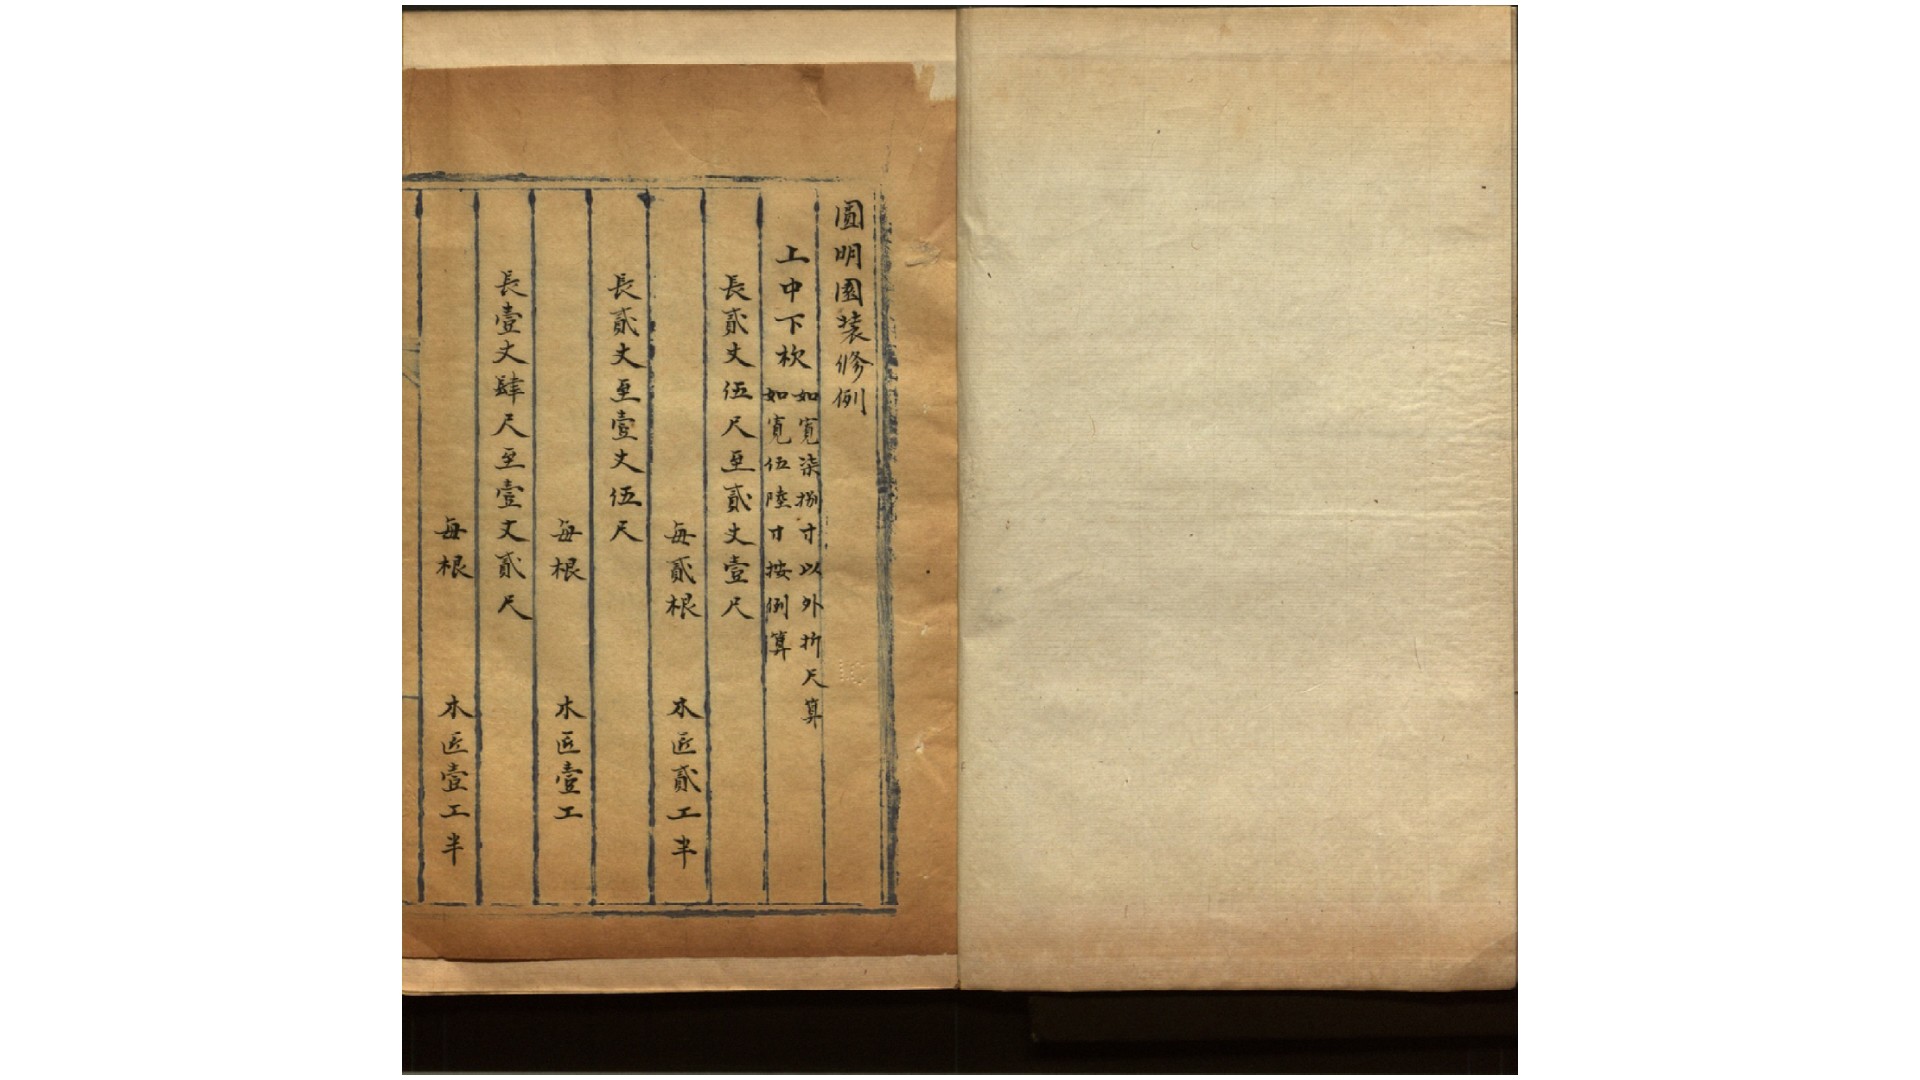 圓明園裝修例
上中下枚
如寬柒捌寸以外折尺算
如寬伍陸寸按例算
長貳丈伍尺至貳丈壹尺
每貳根 木匠貳工半
長貳丈至壹丈伍尺
每根 木匠壹工
長壹丈肆尺至壹丈貳尺
每根 木匠壹工半